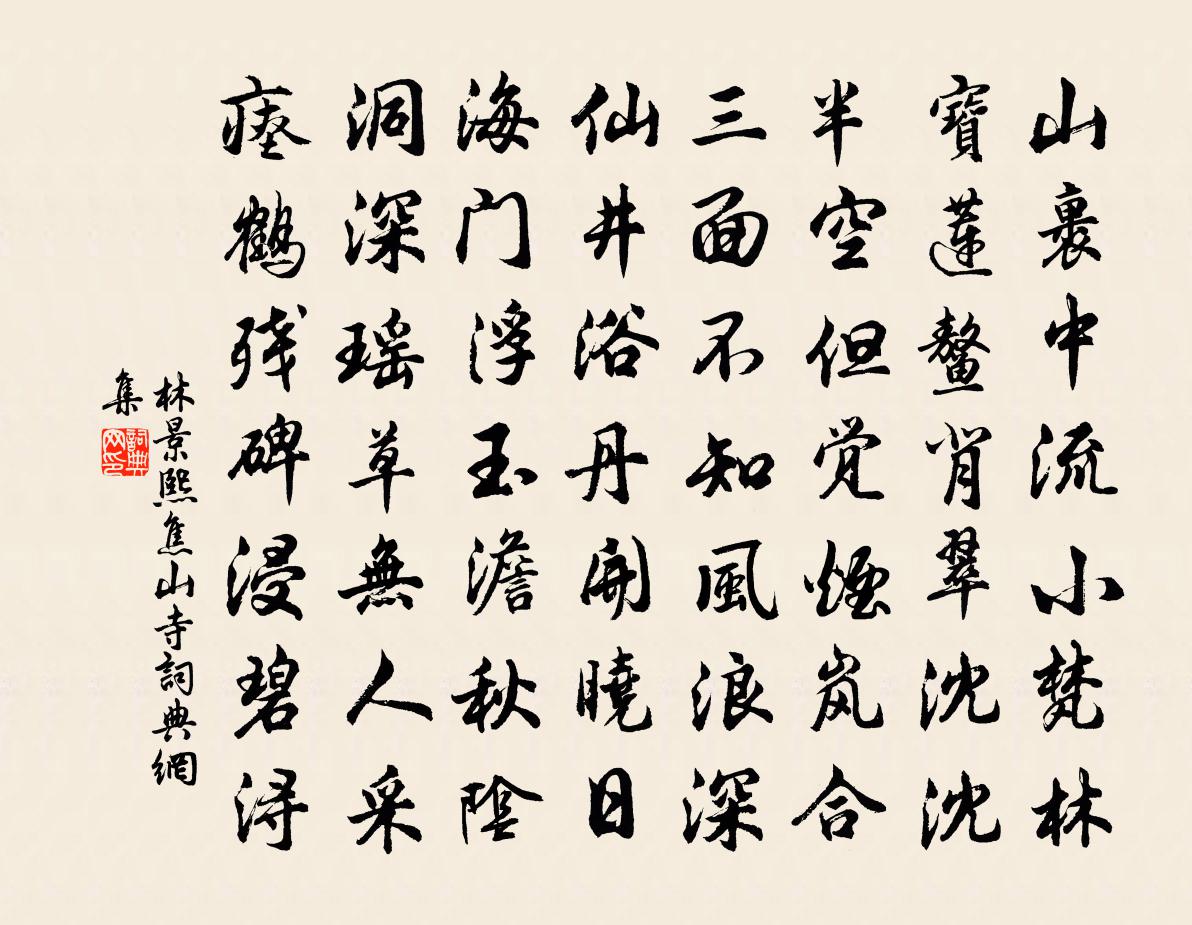 山裹中流小梵林
寶蓮鰲背翠沈沈
半空但觉煙岚合
三面不知風浪深
仙井浴丹開曉日
海门浮玉澹秋陰
洞深瑶草無人采
瘗鹤残碑浸碧浔
林景熙焦山寺詞典網
集
詞典
网印